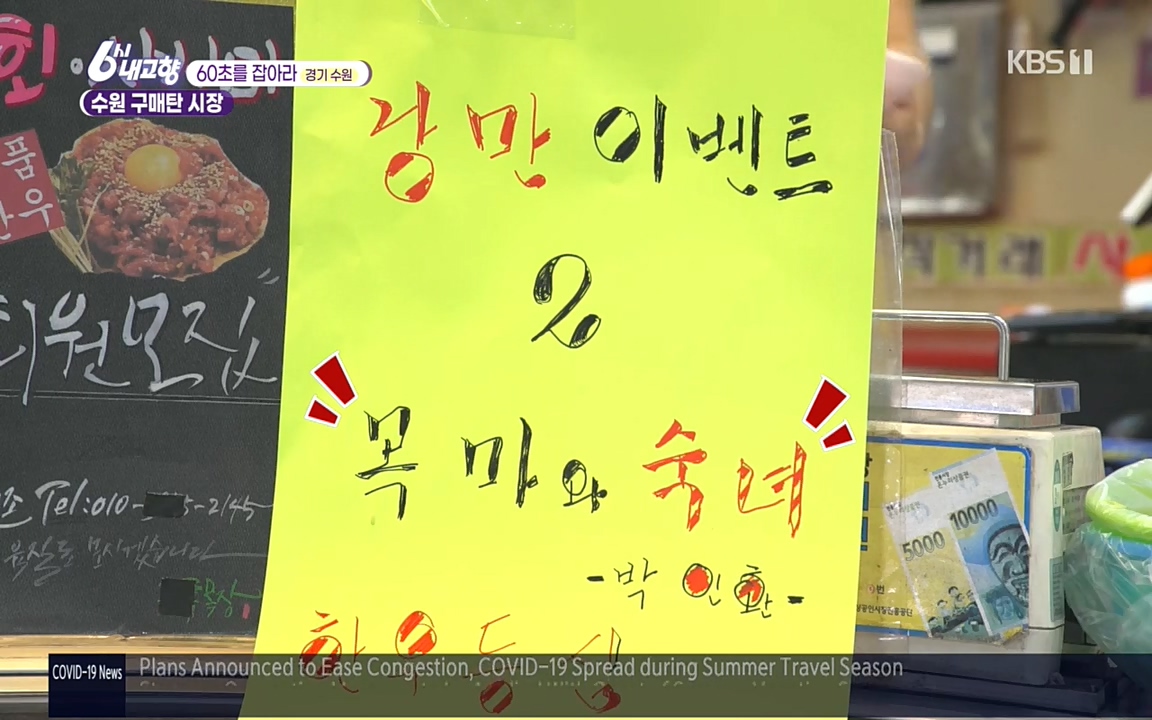 6시 내고향
60초를 잡아라 경기 수원
수원 구매탄 시장
KBS 1
회
낭만 이벤트
2
목마와 숙녀
-박인환-
한우 등심
품
한우
회원모집
Tel:010- 5-2145
모시겠습니다
직거래
5000
10000
COVID-19 News
Plans Announced to Ease Congestion, COVID-19 Spread during Summer Travel Season